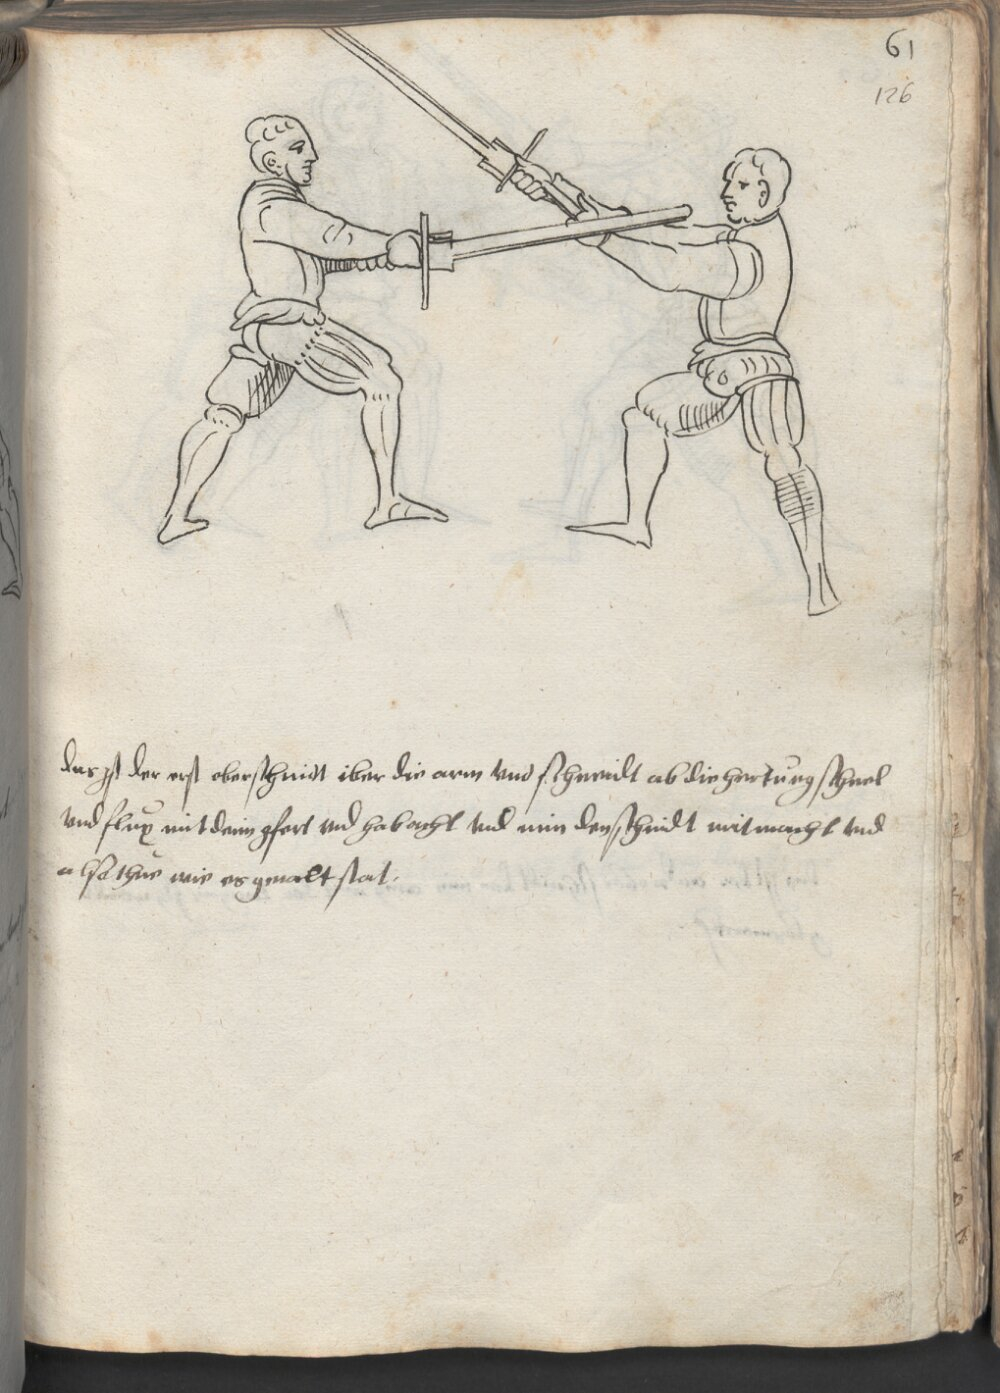 61
126
das ist der erst oberschnidt iber die arm vnd schneidt ab die hertung schnel
vnd flux mit deim gfert vnd hab acht vnd nim den schnidt mit macht vnd
also thue wie es gmalt stat.